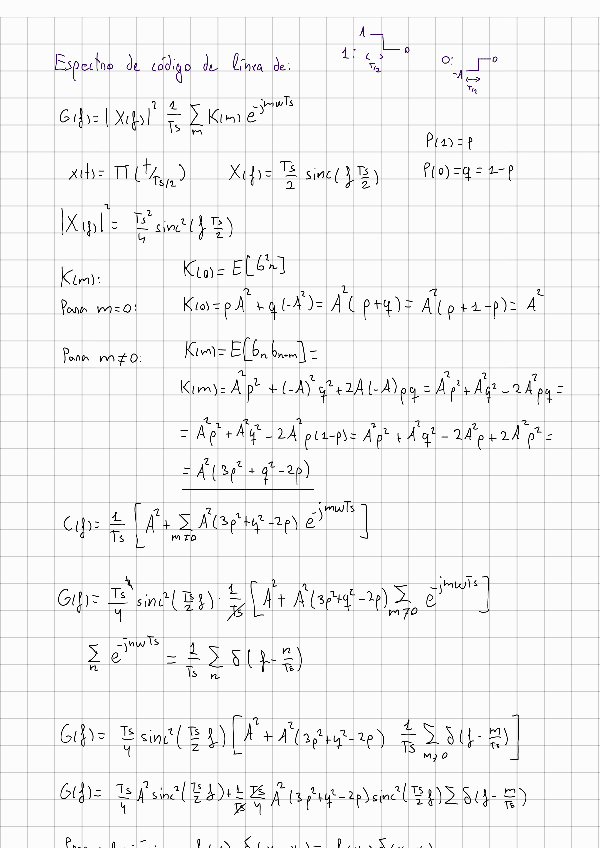 Espectro de código de línea de:
1: 1 0 Ts/2
0: -1 0 Ts/2
G(f) = |X(f)|² 1/Ts ∑_m K(m) e^{-jmωTs}
P(1) = p
P(0) = q = 1-p
x(t) = Π(t/Ts/2) X(f) = Ts/2 sinc(f Ts/2)
|X(f)|² = Ts²/4 sinc²(f Ts/2)
K(m): K(0) = E[b²n]
Para m=0: K(0) = pA² + q(-A²) = A²(p+q) = A²(p+1-p) = A²
Para m≠0: K(m) = E[bn bn+m] =
K(m) = A²p² + (-A)²q² + 2A(-A)pq = A²p² + A²q² - 2A²pq =
= A²p² + A²q² - 2A²p(1-p) = A²p² + A²q² - 2A²p + 2A²p² =
= A²(3p² + q² - 2p)
C(f) = 1/Ts [A² + ∑_{m≠0} A²(3p²+q²-2p) e^{-jmωTs}]
G(f) = Ts²/4 sinc²(Ts/2 f) · 1/Ts [A² + A²(3p²+q²-2p) ∑_{m≠0} e^{-jmωTs}]
∑_n e^{-jnωTs} = 1/Ts ∑_n δ(f - n/Ts)
G(f) = Ts/4 sinc²(Ts/2 f) [A² + A²(3p²+q²-2p) 1/Ts ∑_{m≠0} δ(f - m/Ts)]
G(f) = Ts/4 A² sinc²(Ts/2 f) + 1/Ts Ts/4 A²(3p²+q²-2p) sinc²(Ts/2 f) ∑ δ(f - m/Ts)